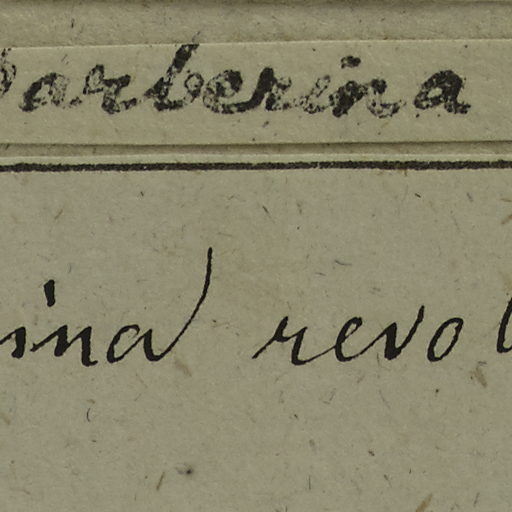 barberina
ina revol